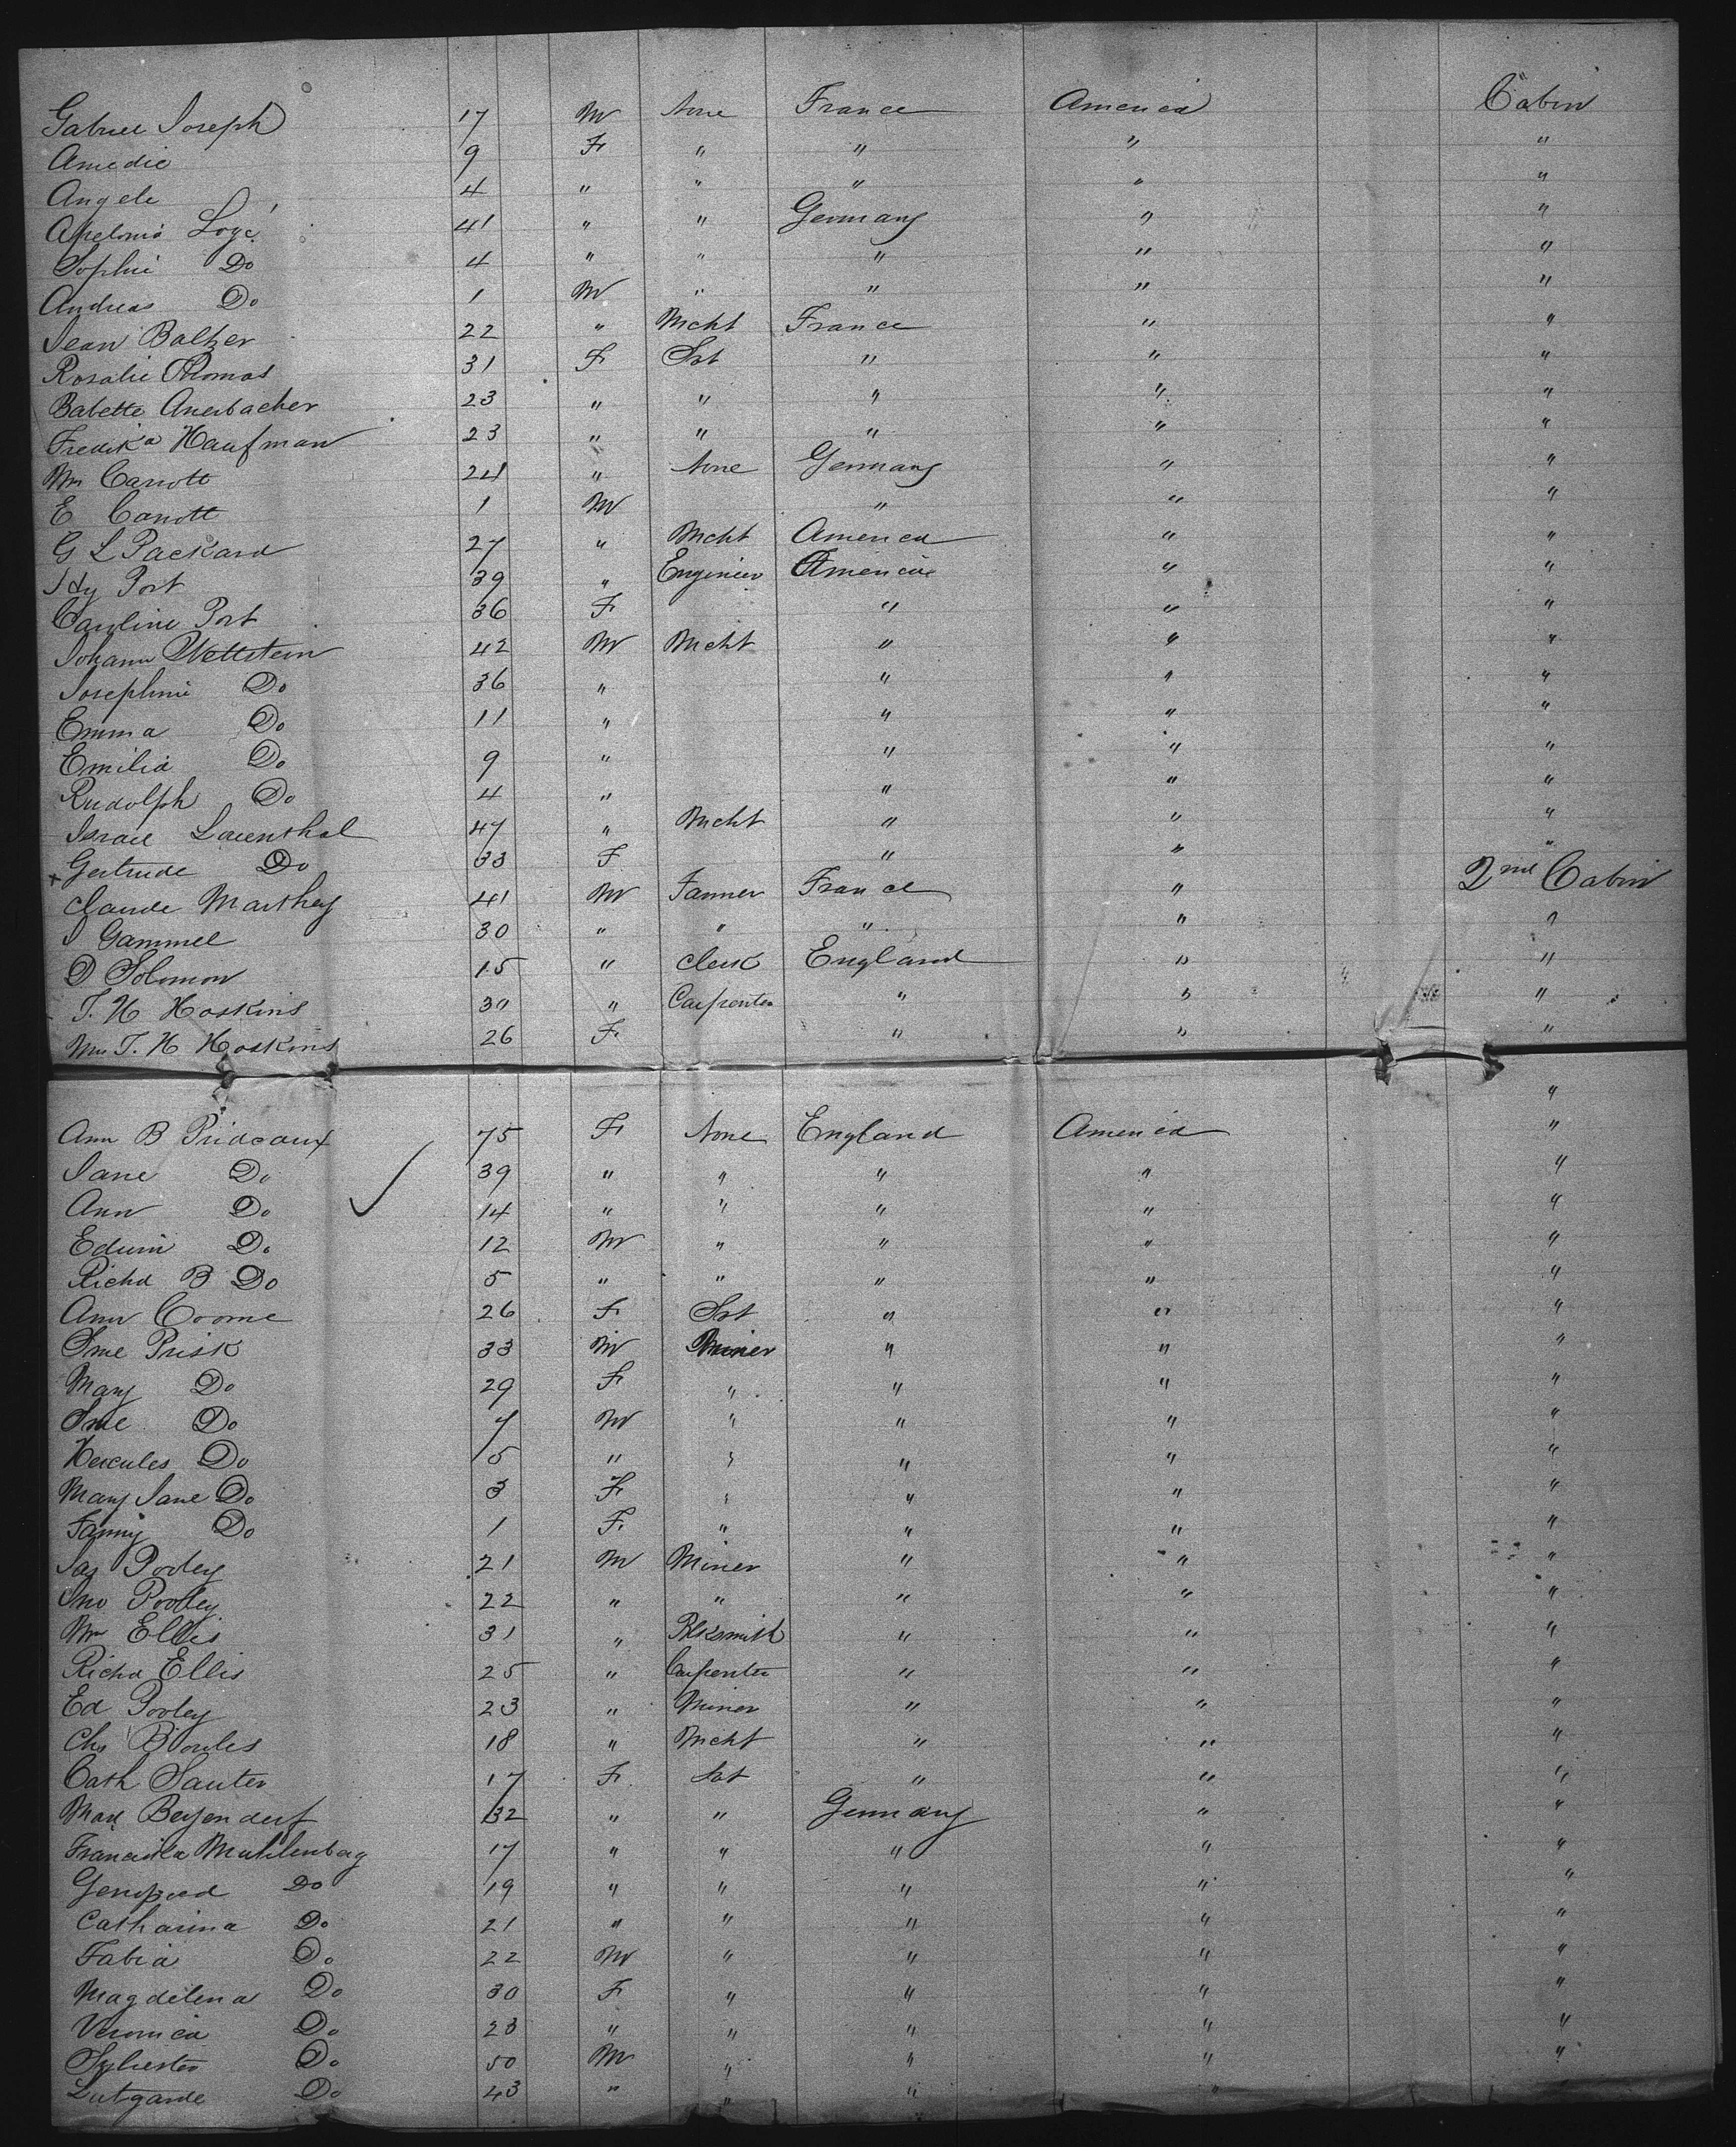 Gabriel Joseph 17 M None France America Cabin
Amedie 9 F " " " "
Angele 4 " " " " "
Apelonia Loge 41 " " Germany " "
Sophie Do 4 " " " " "
Andreas Do 1 M " " " "
Jean Baltzer 22 " Mcht France " "
Rosalie Thomas 31 F Svt " " "
Babette Auerbacher 23 " " " " "
Fredika Kaufman 23 " " " " "
Mrs Carrott 24 " None Germany " "
E Carrott 1 M " " "
G L Packard 27 " Mcht America " "
Hy Port 39 " Engineer America " "
Caroline Port 36 F " " "
Johann Wettstein 42 M Mcht " " "
Josephine Do 36 " " " "
Emma Do 11 " " " "
Emilia Do 9 " " " "
Rudolph Do 4 " " " "
Israel Lauenthal 47 " Mcht " " "
+ Gertrude Do 33 F " " "
Claude Marthey 41 M Farmer France " 2nd Cabin
J Gammel 30 " " " " "
D Solomon 15 " Clerk England " "
T. H Hoskins 30 " Carpenter " " "
Mrs T. H Hoskins 26 F " " "
"
Ann B Prideaux 75 F None England America "
Jane Do 39 " " " " "
Ann Do 14 " " " " "
Edwin Do 12 M " " " "
Richd B Do 5 " " " " "
Ann Coome 26 F Svt " " "
Jme Prisk 33 M Miner " " "
Mary Do 29 F " " " "
Jme Do 7 M " " " "
Hercules Do 5 " " " " "
Mary Jane Do 3 F " " " "
Fanny Do 1 F " " " "
Jas Pooley 21 M Miner " " "
Jno Pooley 22 " " " " "
Wm Ellis 31 " Blksmith " " "
Richd Ellis 25 " Carpenter " " "
Ed Pooley 23 " Miner " " "
Chs Bowles 18 " Mcht " " "
Cath Sauter 17 F Svt " " "
Max Beyendorf 32 " " Germany " "
Muhlenberg 17 " " " " "
Do 19 " " " " "
Catharina Do 21 " " " " "
Fabia Do 22 M " " " "
Magdelena Do 30 F " " " "
Veronica Do 23 " " " " "
Sylvester Do 50 M " " " "
Lutgarde Do 43 " " " "